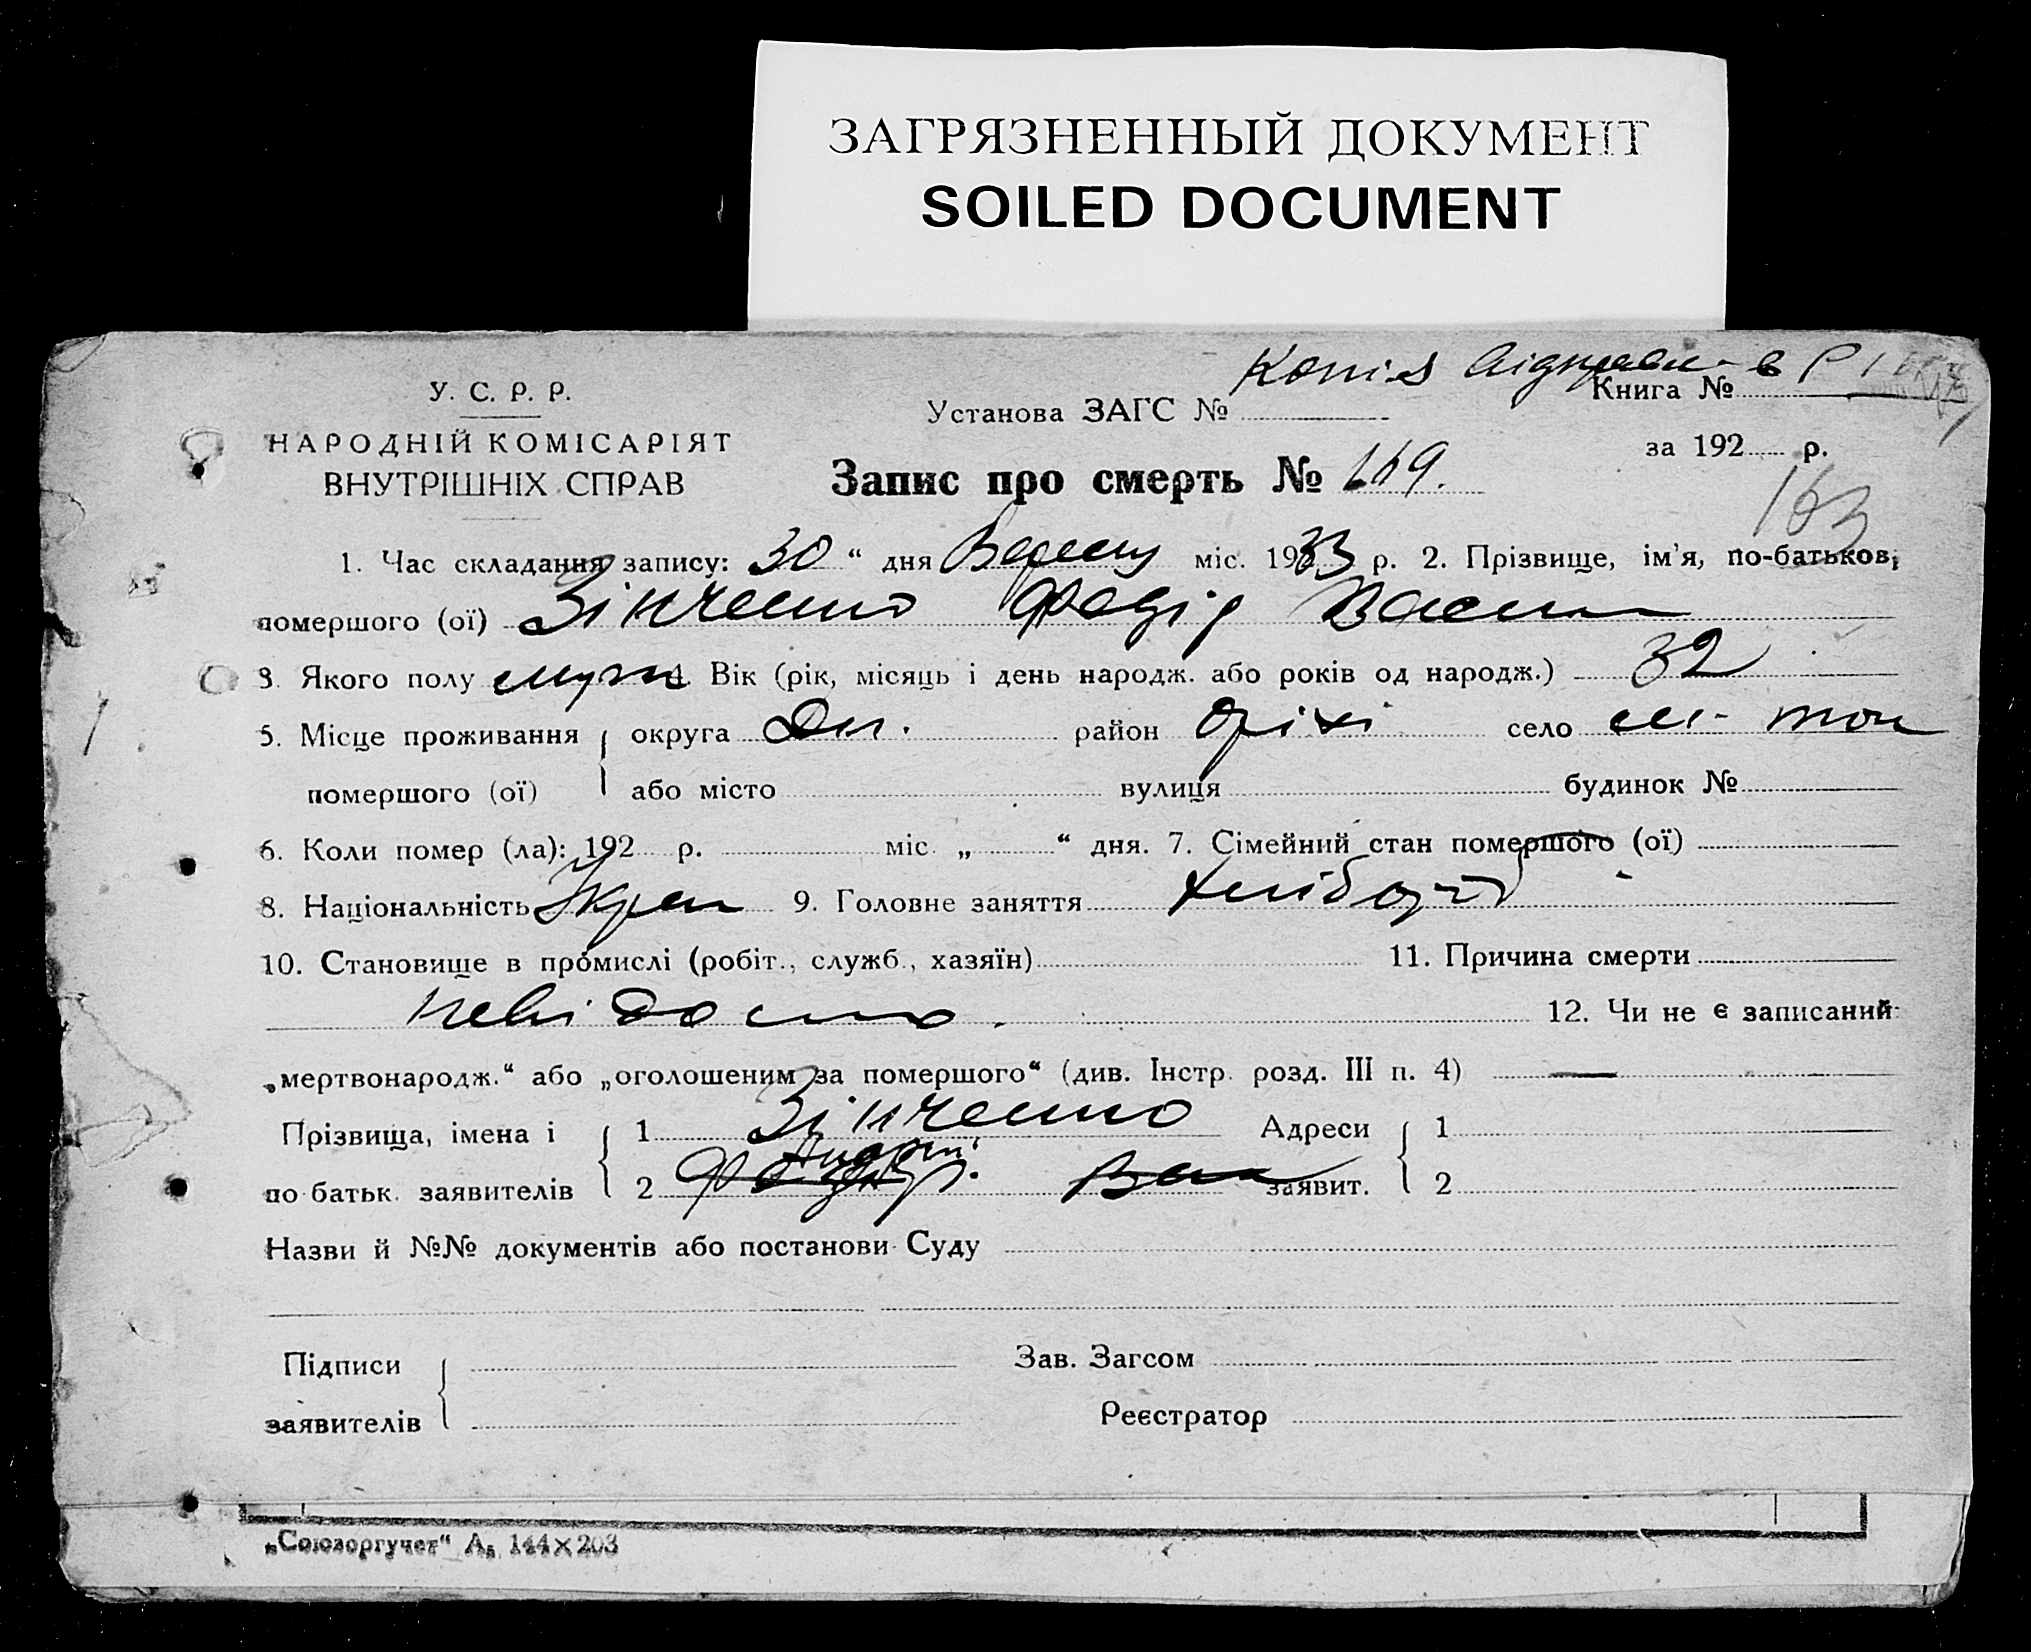 ЗАГРЯЗНЕННЫЙ ДОКУМЕНТ
SOILED DOCUMENT
Копія в Р
У. С. Р. Р.
Установа ЗАГС № Книга №
НАРОДНІЙ КОМІСАРІЯТ за 192 р.
ВНУТРІШНІХ СПРАВ Запис про смерть № 169.
163
1. Час складання запису: 30 “ дня Вересня міс. 1933 р. 2. Прізвище, ім'я, по-батькові
помершого (ої) Зінченко Федір Васил
3. Якого полу муж 4. Вік (рік, місяць і день народж. або років од народж.) 32
5. Місце проживання округа Дн. район Оріхі село м- ток
помершого (ої) або місто вулиця будинок №
6. Коли помер (ла): 192 р. міс. „ “ дня. 7. Сімейний стан помершого (ої)
8. Національність Укра 9. Головне заняття хлібороб
10. Становище в промислі (робіт., служб., хазяїн) 11. Причина смерти
невідомо. 12. Чи не є записаний
„мертвонародж.“ або „оголошеним за помершого“ (див. Інстр. розд. III п. 4) —
Прізвища, імена і 1 Зінченко Адреси 1
Андрій
по батьк. заявителів 2 Федір Вас заявит. 2
Назви й №№ документів або постанови Суду
Підписи Зав. Загсом
заявителів Реєстратор
„Союзоргучет“ А₅ 144×203